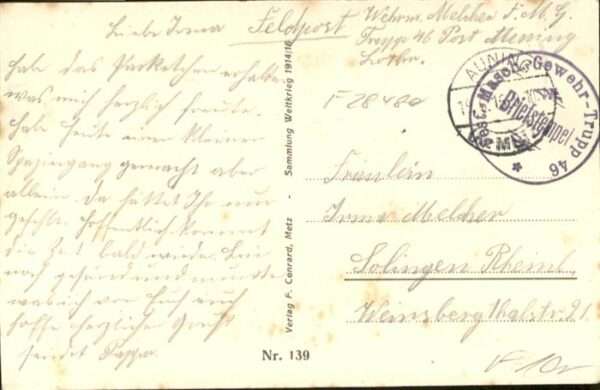 Feldpost
Wehrm. Melcher F. M. G.
Trupp 46 Post Mening
Lothr.
Liebe Irma
habe das Packetchen erhalten
was mich herzlich freute.
habe heute einen kleinen
Spaziergang gemacht aber
allein. Da hättet Ihr nur
gefehlt. hoffentlich kommt
die Zeit bald wieder. Bin
noch gesund und munter
was ich von Euch auch
hoffe herzliche Gruß
sendet Pappa.
Verlag F. Conrard, Metz - Sammlung Weltkrieg 1914/16
Nr. 139
Masch.-Gewehr-Trupp 46
Briefstempel
F 28480
Fräulein
Irma Melcher
Solingen Rheinl.
Wernsberg thalstr. 21